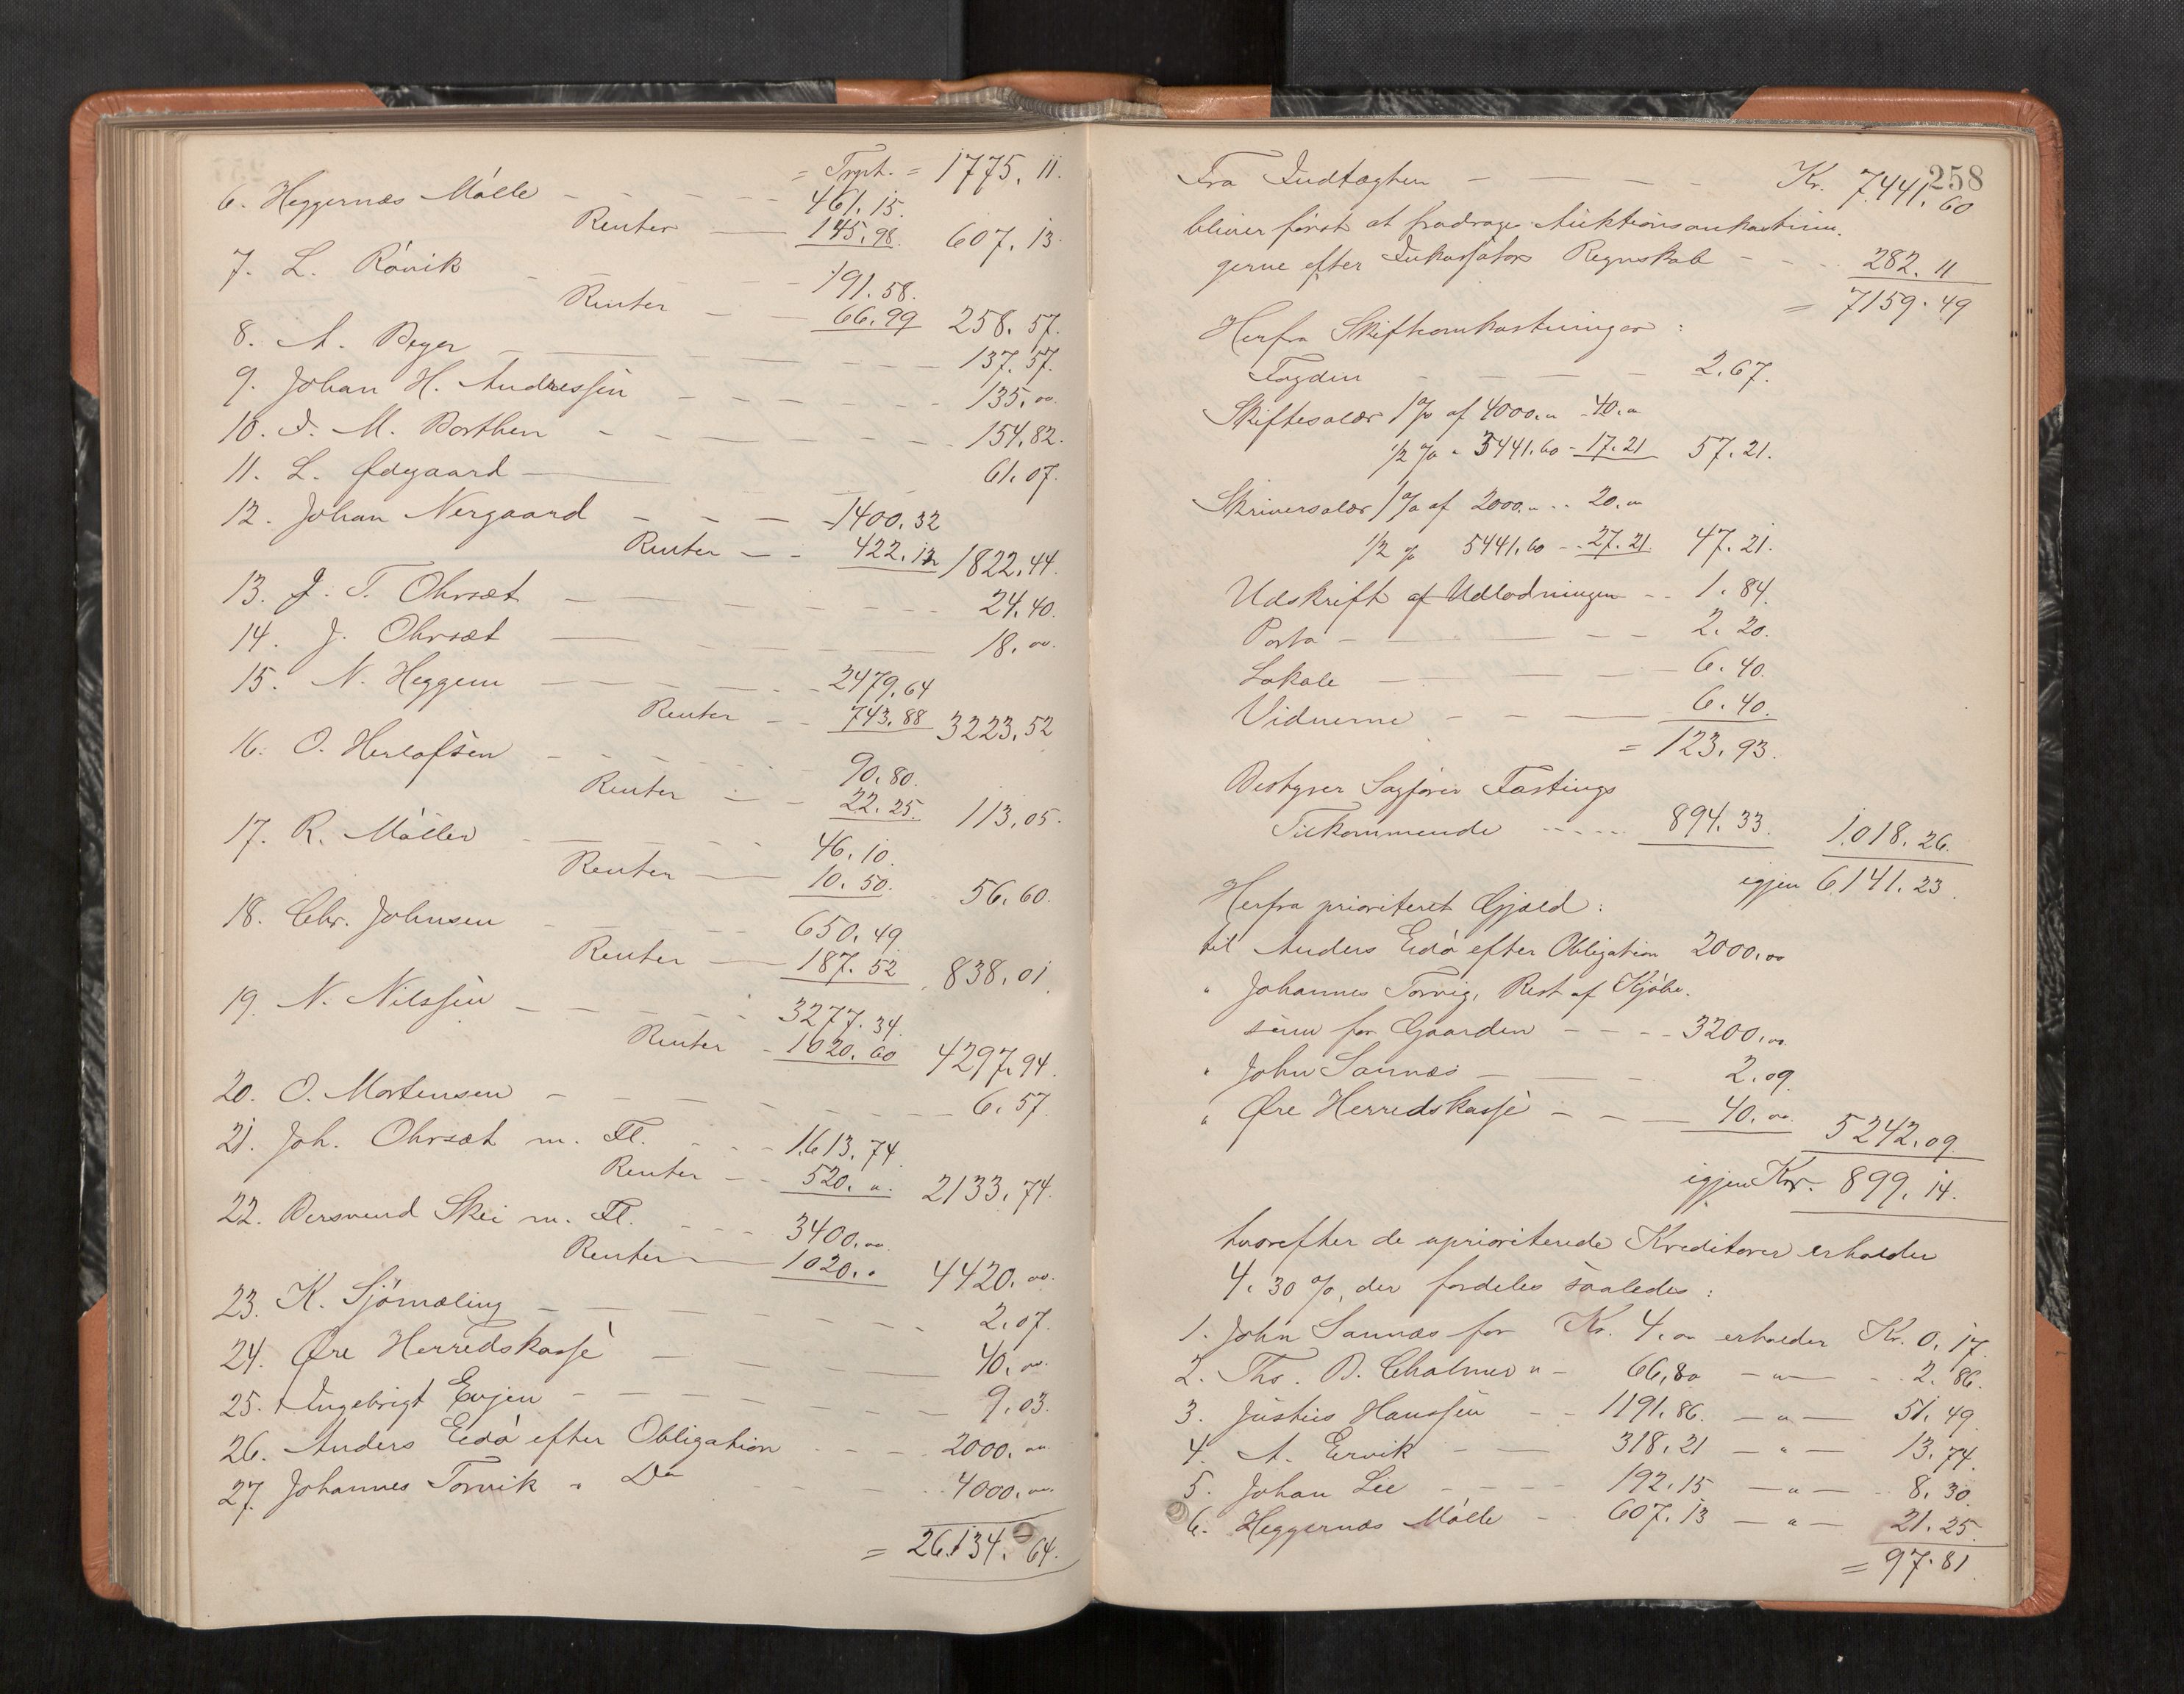 = Trpt. = 1775. 11.
6. Heggernæs Mølle - - - - 461. 15.
Renter - 145. 98. 607. 13.
7. L. Røvik - - - - 191. 58.
Renter - - 66. 99 258. 57.
8. A. Beyer - - - - 137. 57.
9. Johan H. Andressen - - - - 135. 00.
10. I. M. Borthen - - - - 154. 82.
11. L. Ødegaard - - - 61. 07.
12. Johan Nergaard - - - 1400. 32
Renter - - 422. 12 1822. 44.
13. J. T. Ohrsæt - - - - 24. 40.
14. J. Ohrsæt - - - - 18. 00.
15. N. Heggem - - - - 2479. 64
Renter - - 743. 88 3223. 52
16. O. Herlofsen - - - - 90. 80.
Renter - - 22. 25. 113. 05.
17. R. Møller - - - - 46. 10.
Renter - 10. 50. 56. 60.
18. Chr. Johnsen - - - - 650. 49.
Renter - 187. 52 838. 01.
19. N. Nilssen - - - - 3277. 34.
Renter - 1020. 60 4297. 94.
20. O. Mortensen - - - - 6. 57.
21. Joh. Ohrsæt m. Fl. - - - 1613. 74.
Renter - - 520. " 2133. 74.
22. Bersvend Skei m. Fl. - - - 3400. 00
Renter - 1020. " 4420. 00.
23. K. Sjømæling - - - - 2. 07.
24. Øre Herredskasse - - - 40. 00.
25. Ingebrigt Evjen - - - - 9. 03.
26. Anders Eidø efter Obligation - - - 2000. 00
27. Johannes Torvik " Do - - - 4000. 00.
= 26134. 64.
258
Fra Indtægten - - - - Kr. 7441. 60
bliver først at fradrage Auktionsomkostnin-
gerne efter Inkassators Regnskab - - - 282. 11
= 7159. 49
Herfra Skifteomkostninger :
Fogden - - - - 2. 67.
Skiftesalær 1 % af 4000. " - 40. "
1/2 % " 3441. 60 - 17. 21 57. 21.
Skriversalær 1 % af 2000. " - - 20. "
1/2 % 5441. 60 - - 27. 21. 47. 21.
Udskrift af Udlodningen - - 1. 84.
Porto - - - - 2. 20.
Lokale - - - 6. 40.
Vidnerne - - - 6. 40.
= 123. 93.
Bestyrer Sagfører Fastings
Tilkommende - - - - 894. 33. 1018. 26.
igjen 6141. 23.
Herfra prioriteret Gjæld :
til Anders Eidø efter Obligation 2000. 00
" Johannes Torvig, Rest af Kjøbe-
sum for Gaarden - - - - 3200. 00.
" John Sannæs - - - 2. 09.
" Øre Herredskasse - - - 40. 00. 5242. 09.
igjen Kr. 899. 14.
hvorefter de uprioriterede Kreditorer erholder
4. 30 %, der fordeles saaledes :
1. John Sannæs for Kr. 4. 00 erholder Kr. 0. 17.
2. Ths. B. Chalmer " - 66. 80 - " - - - 2. 86.
3. Justus Hanssen - - 1191. 86. - " - 51. 49.
4. A. Ervik - - 318. 21 - " - 13. 74.
5. Johan Lie - - - - 192. 15 - " - - 8. 30.
6. Heggernæs Mølle - - 607. 13 - " - 21. 25.
= 97. 81.